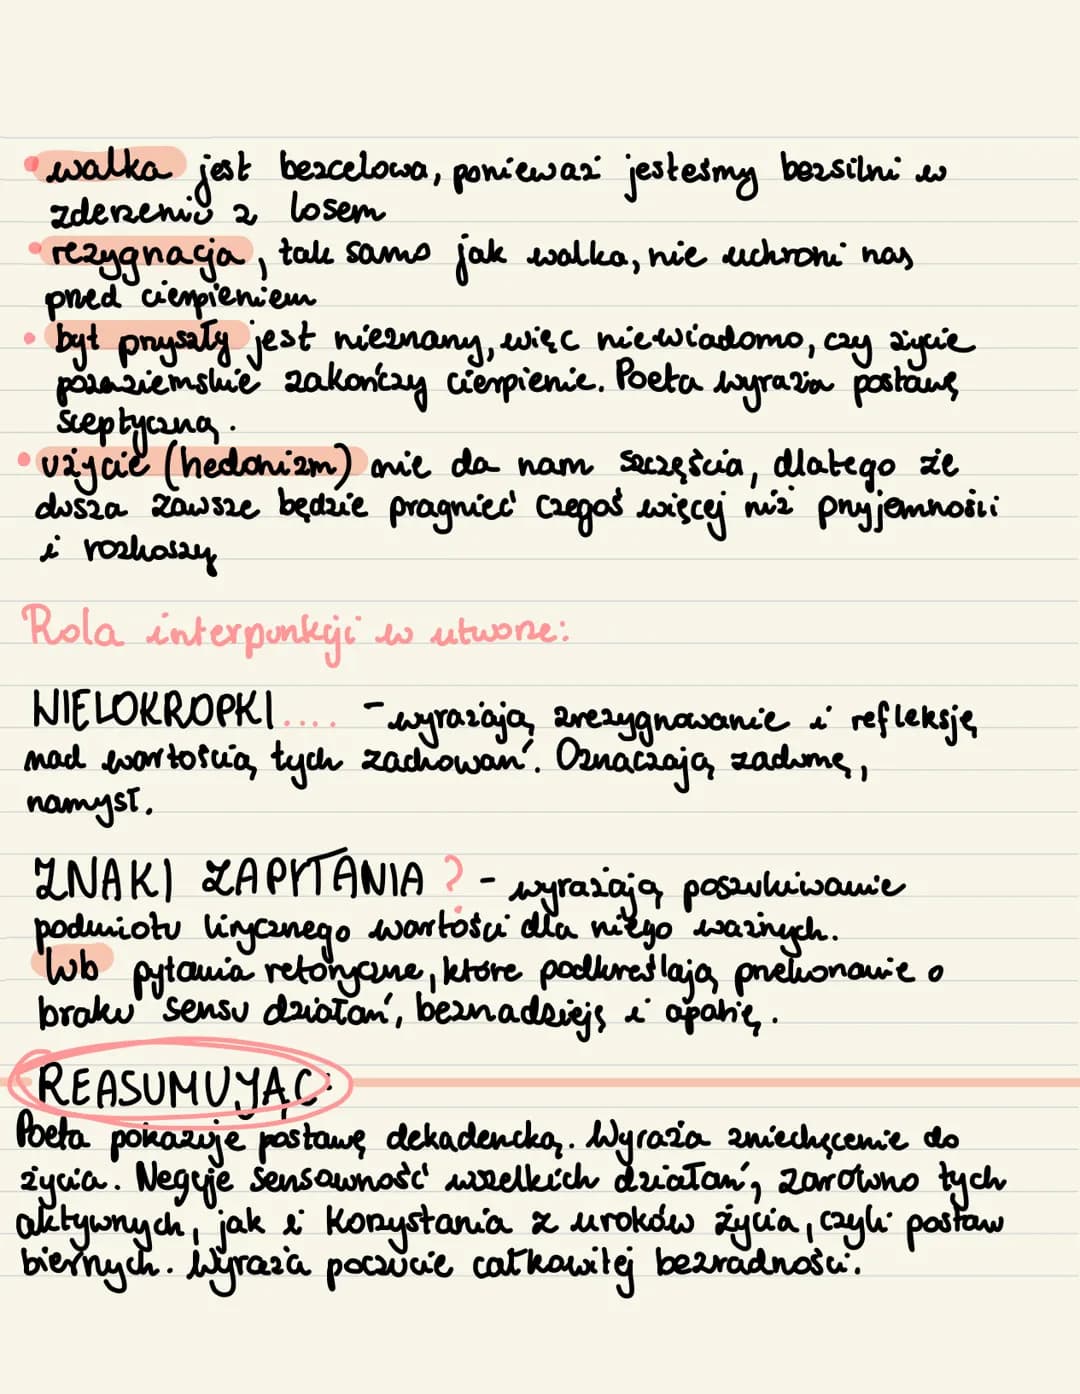 • walka jest bezcelowa, ponieważ jesteśmy bezsilni w
zderzeniu z losem
• rezygnacja, tak samo jak walka, nie uchroni nas
przed cierpieniem
• byt przyszły jest nieznany, więc niewiadomo, czy życie
pozaziemskie zakończy cierpienie. Poeta wyraża postawę
sceptyczną.
• użycie (hedonizm) nie da nam szczęścia, dlatego że
dusza zawsze będzie pragnieć czegoś więcej niż przyjemności
i rozkoszy
Rola interpunkcji w utworze:
WIELOKROPKI.... - wyrażają zrezygnowanie i refleksję
nad wartością tych zachowań. Oznaczają zadumę,
namysł.
ZNAKI ZAPYTANIA ? - wyrażają poszukiwanie
podmiotu lirycznego wartości dla niego ważnych.
lub pytania retoryczne, które podkreślają przekonanie o
braku sensu działań, beznadzieję i apatię.
REASUMUJĄC:
Poeta pokazuje postawę dekadencką. Wyraża zniechęcenie do
życia. Neguje sensowność wszelkich działań, zarówno tych
aktywnych, jak i korzystania z uroków życia, czyli postaw
biernych. Wyraża poczucie całkowitej bezradności.